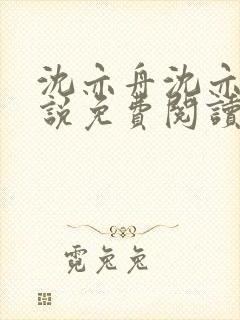 沈亦舟沈亦
說免費閱讀
霓兔兔